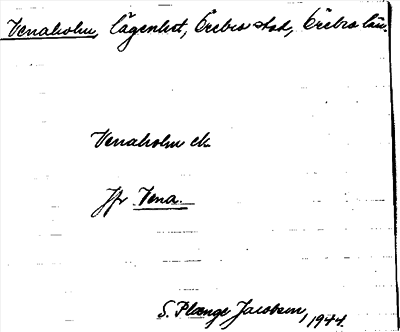 Venaholm, lägenhet, Örebro stad, Örebro län.
Venaholm ek
Jfr Vena.
S. Plænge Jacobson, 1944.